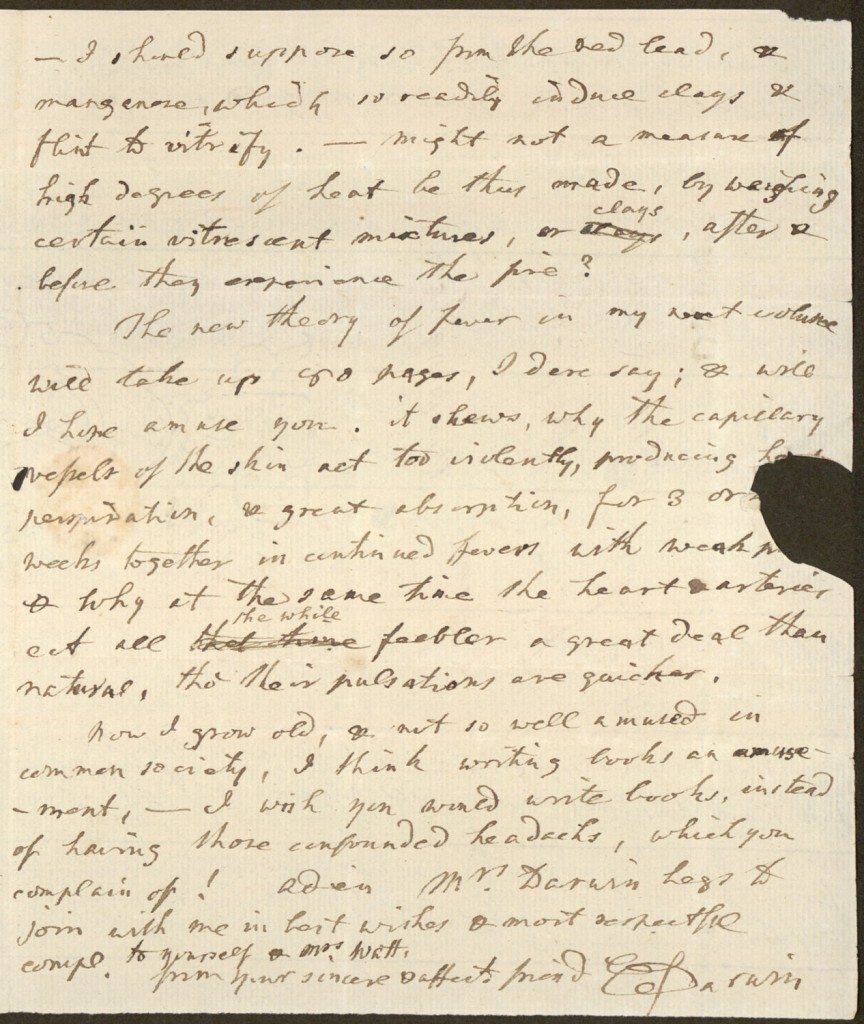 — I should suppose so from the red lead, &
manganese, which so readily induce clays &
flint to vitrify. — might not a measure of
high degrees of heat be thus made, by weighing
certain vitrescent mixtures, or clays, after &
before they experience the fire?
The new theory of fever in my next volume
will take up 80 pages, I dare say; & will
I hope amuse you. it shews, why the capillary
vessels of the skin act too violently, producing
perspiration, & great absorption, for 3 or
weeks together in continued fevers with weak
& why at the same time the heart & arteries
act all the while that time feebler a great deal than
natural, tho' their pulsations are quicker.
Now I grow old, & not so well amused in
common society, I think writing books an amuse-
-ment, — I wish you would write books, instead
of having those confounded headachs, which you
complain of! adieu Mrs. Darwin begs to
join with me in best wishes & most respectful
compl. to yourself & Mrs Watt.
from your sincere & affecte friend E Darwin